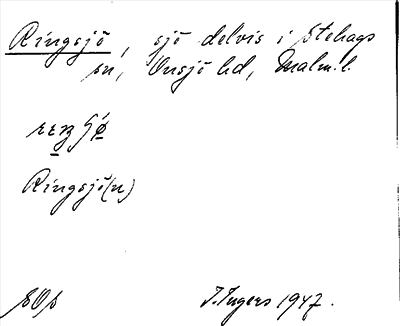 Ringsjö, sjö delvis i Stehags
sn, Onsjö hd, Malm. l.
Ringsjö(n)
I. Ingers 1947.